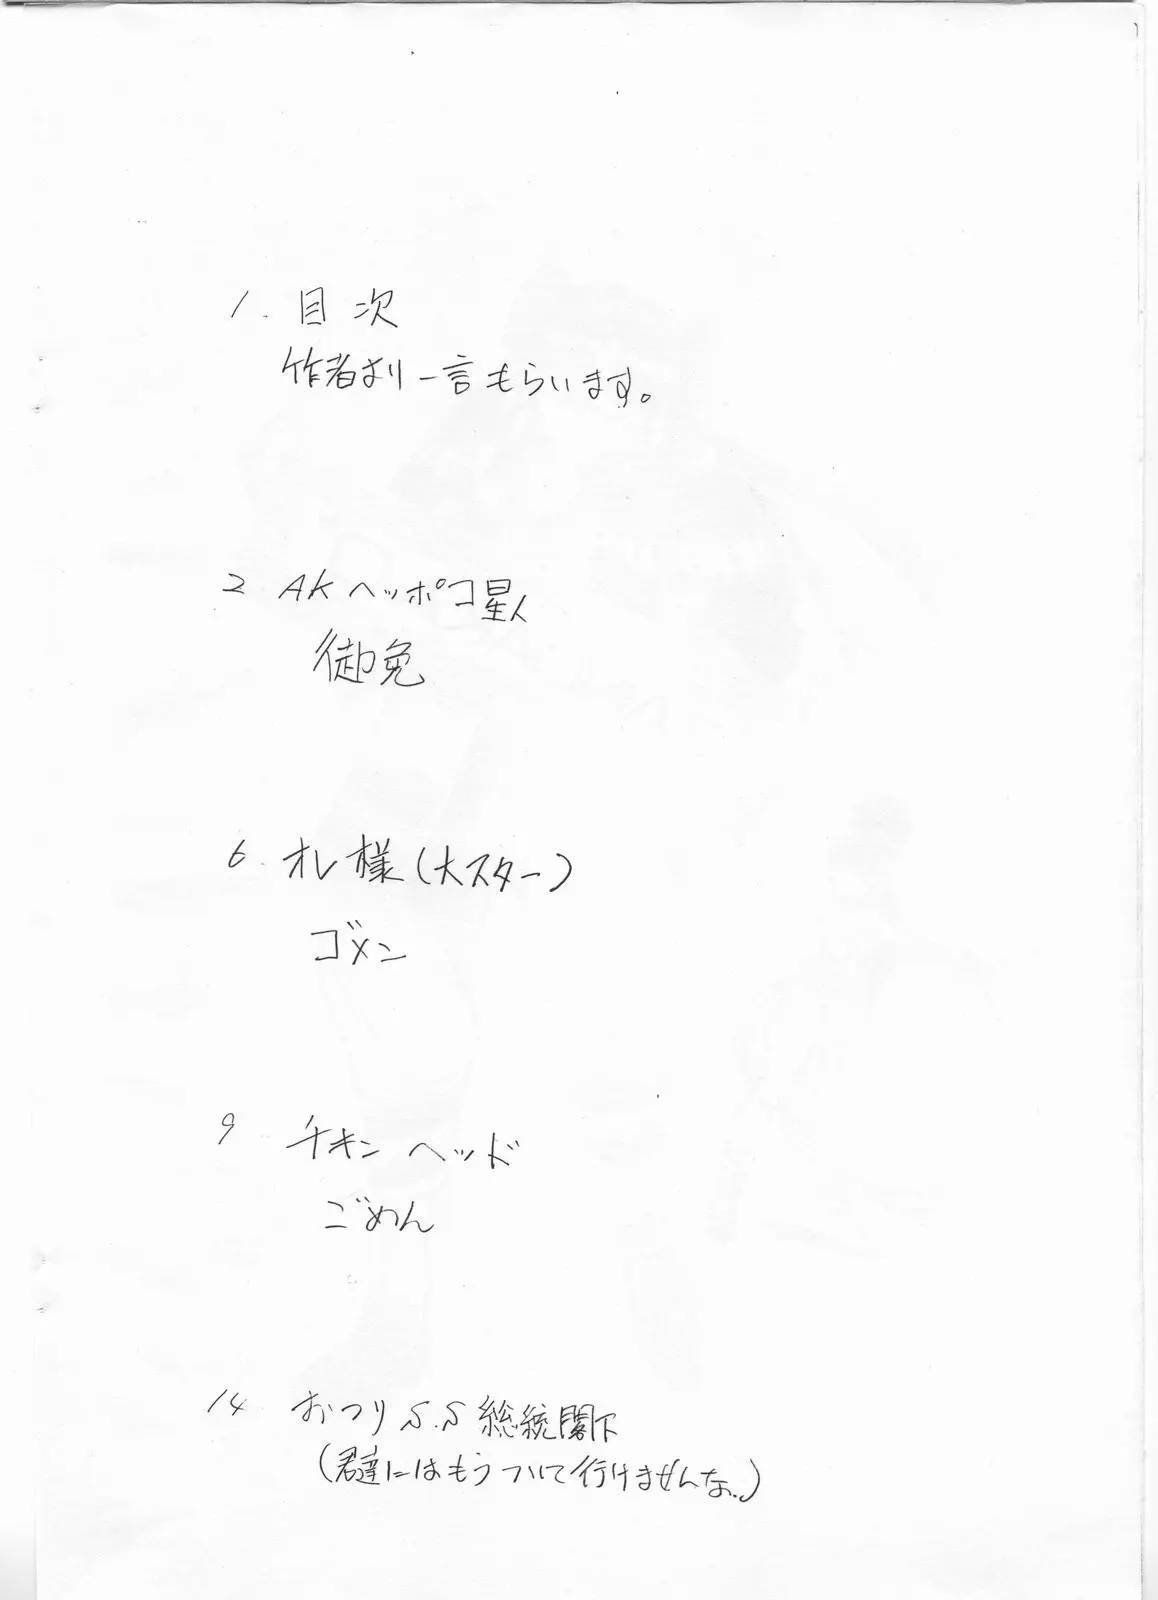 1. 目次
作者より一言もらいます。
2 AKヘッポコ星人
御免
6. オレ様(大スター)
ゴメン
9 チキンヘッド
ごめん
14 おつりS.S総統閣下
(君達にはもうついて行けませんな。)